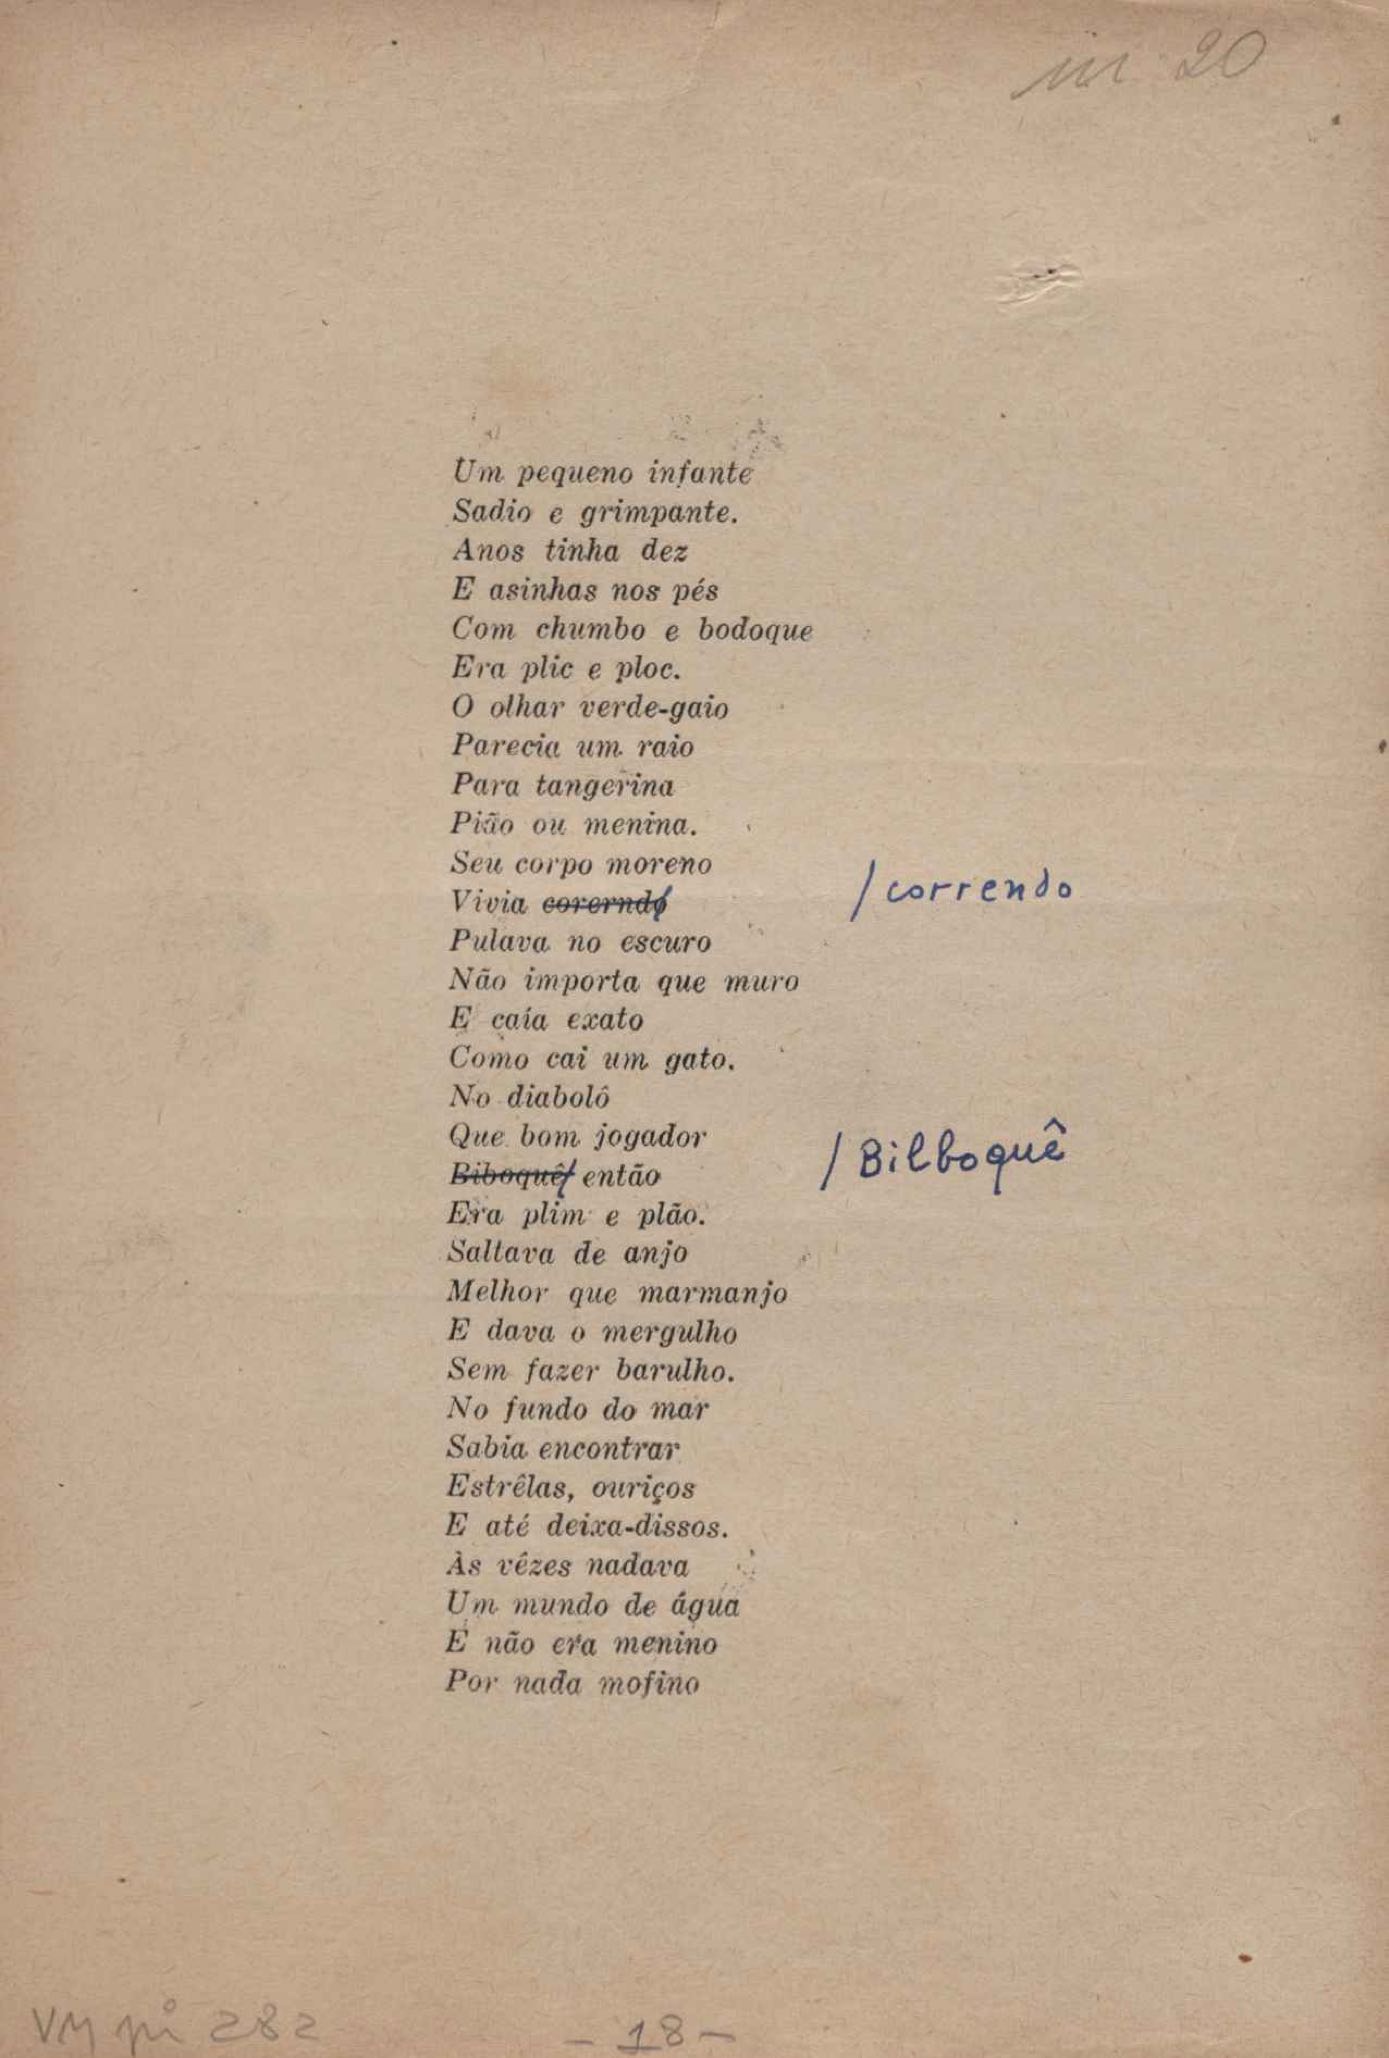 20
Um pequeno infante
Sadio e grimpante.
Anos tinha dez
E asinhas nos pés
Com chumbo e bodoque
Era plic e ploc.
O olhar verde-gaio
Parecia um raio
Para tangerina
Pião ou menina.
Seu corpo moreno
Vivia corerndo /correndo
Pulava no escuro
Não importa que muro
E caía exato
Como cai um gato.
No diabolô
Que bom jogador
Biboquê então /Bilboquê
Era plim e plão.
Saltava de anjo
Melhor que marmanjo
E dava o mergulho
Sem fazer barulho.
No fundo do mar
Sabia encontrar
Estrêlas, ouriços
E até deixa-dissos.
Às vêzes nadava
Um mundo de água
E não era menino
Por nada mofino
VM pi 282
- 18 -